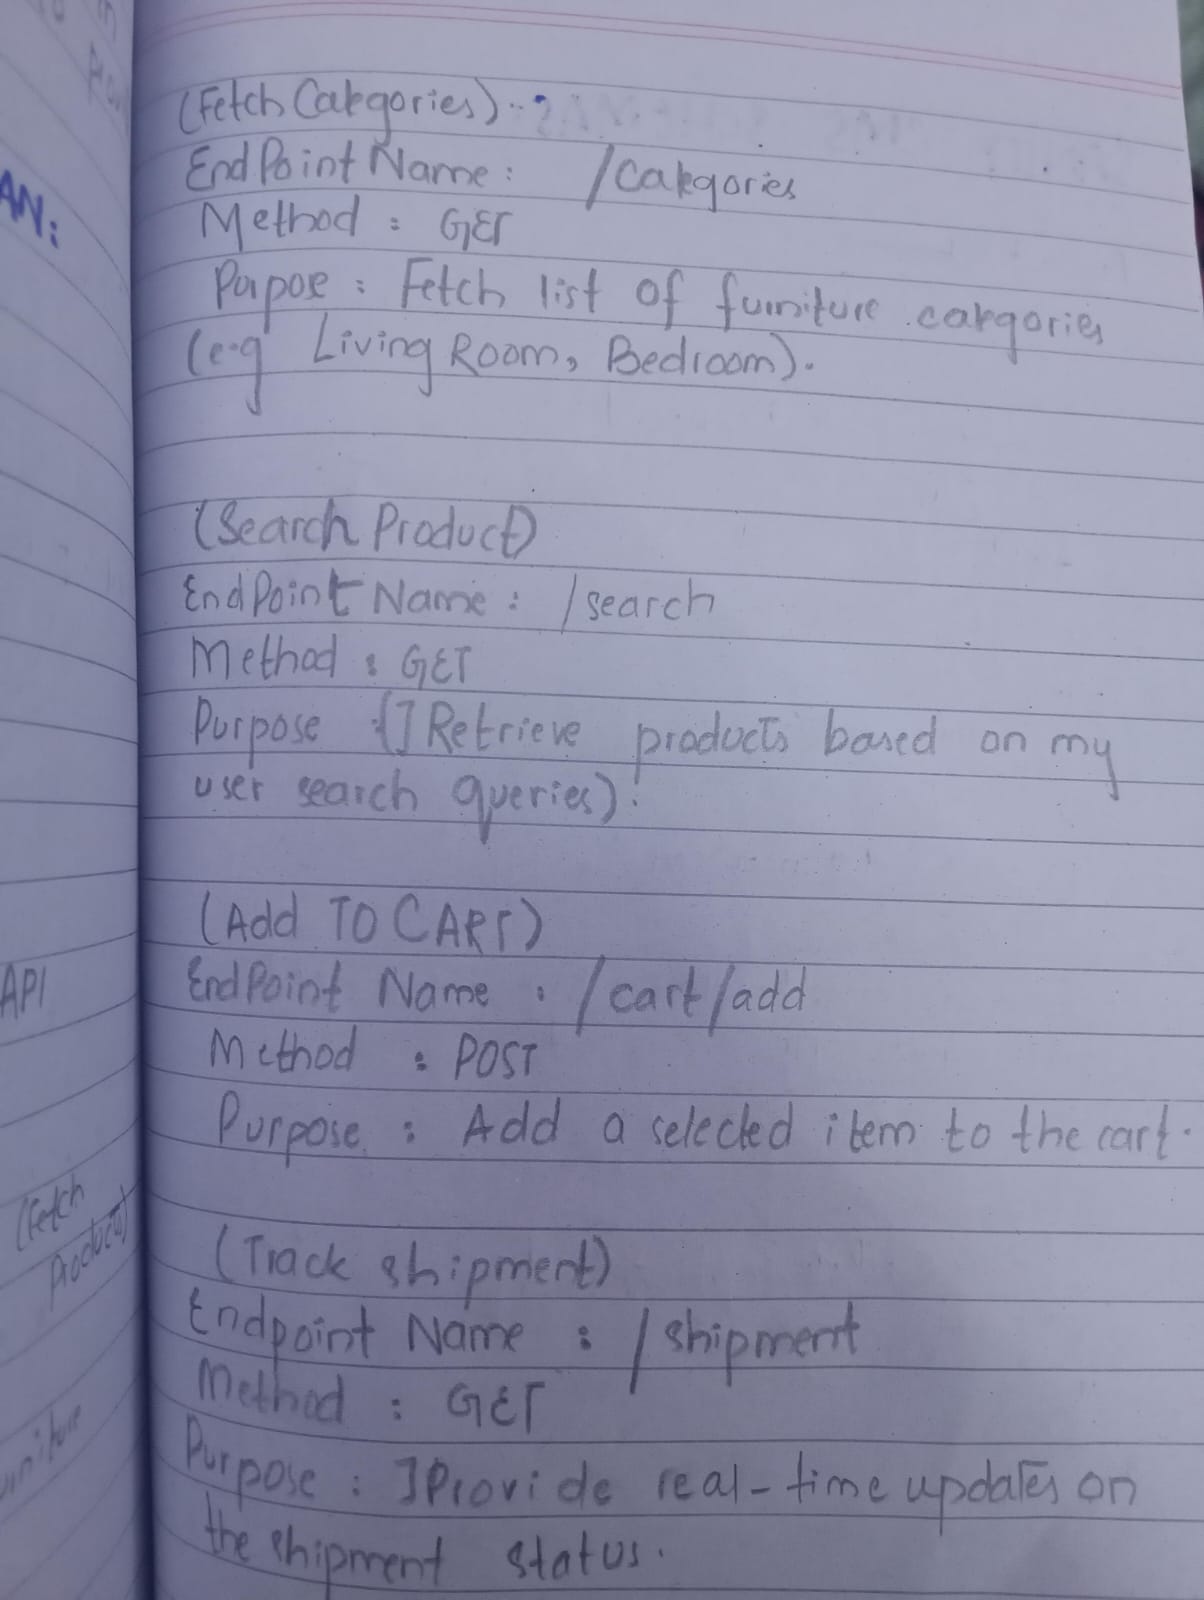 (Fetch Categories)..
EndPoint Name: /Categories
Method : GET
Purpose : Fetch list of furniture categories
(e.g Living Room, Bedroom).
(Search Product)
EndPoint Name : /search
Method : GET
Purpose {] Retrieve products based on my
user search queries).
(Add TO CART)
EndPoint Name : /cart/add
Method : POST
Purpose : Add a selected item to the cart.
(Track shipment)
Endpoint Name : /shipment
Method : GET
Purpose : ]Provide real-time updates on
the shipment status.
AN:
API
(Fetch
Products)